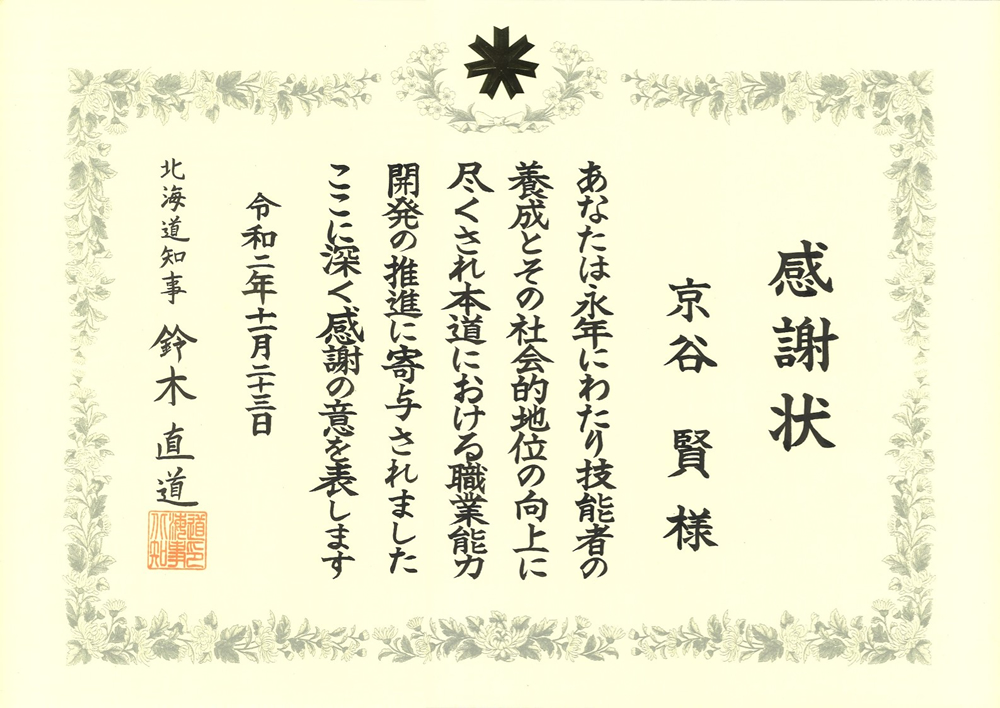 感謝状
京谷賢様
あなたは永年にわたり技能者の
養成とその社会的地位の向上に
尽くされ本道における職業能力
開発の推進に寄与されました
ここに深く感謝の意を表します
令和二年十一月二十三日
北海道知事 鈴木直道
北海道知事道印